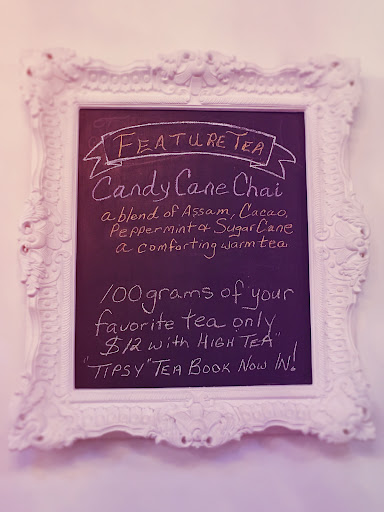 FEATURE TEA
Candy Cane Chai
a blend of Assam, Cacao,
Peppermint & Sugar Cane
a comforting warm tea
100 grams of your
favorite tea only
$12 with HIGH TEA"
"TIPSY" TEA BOOK NOW IN!